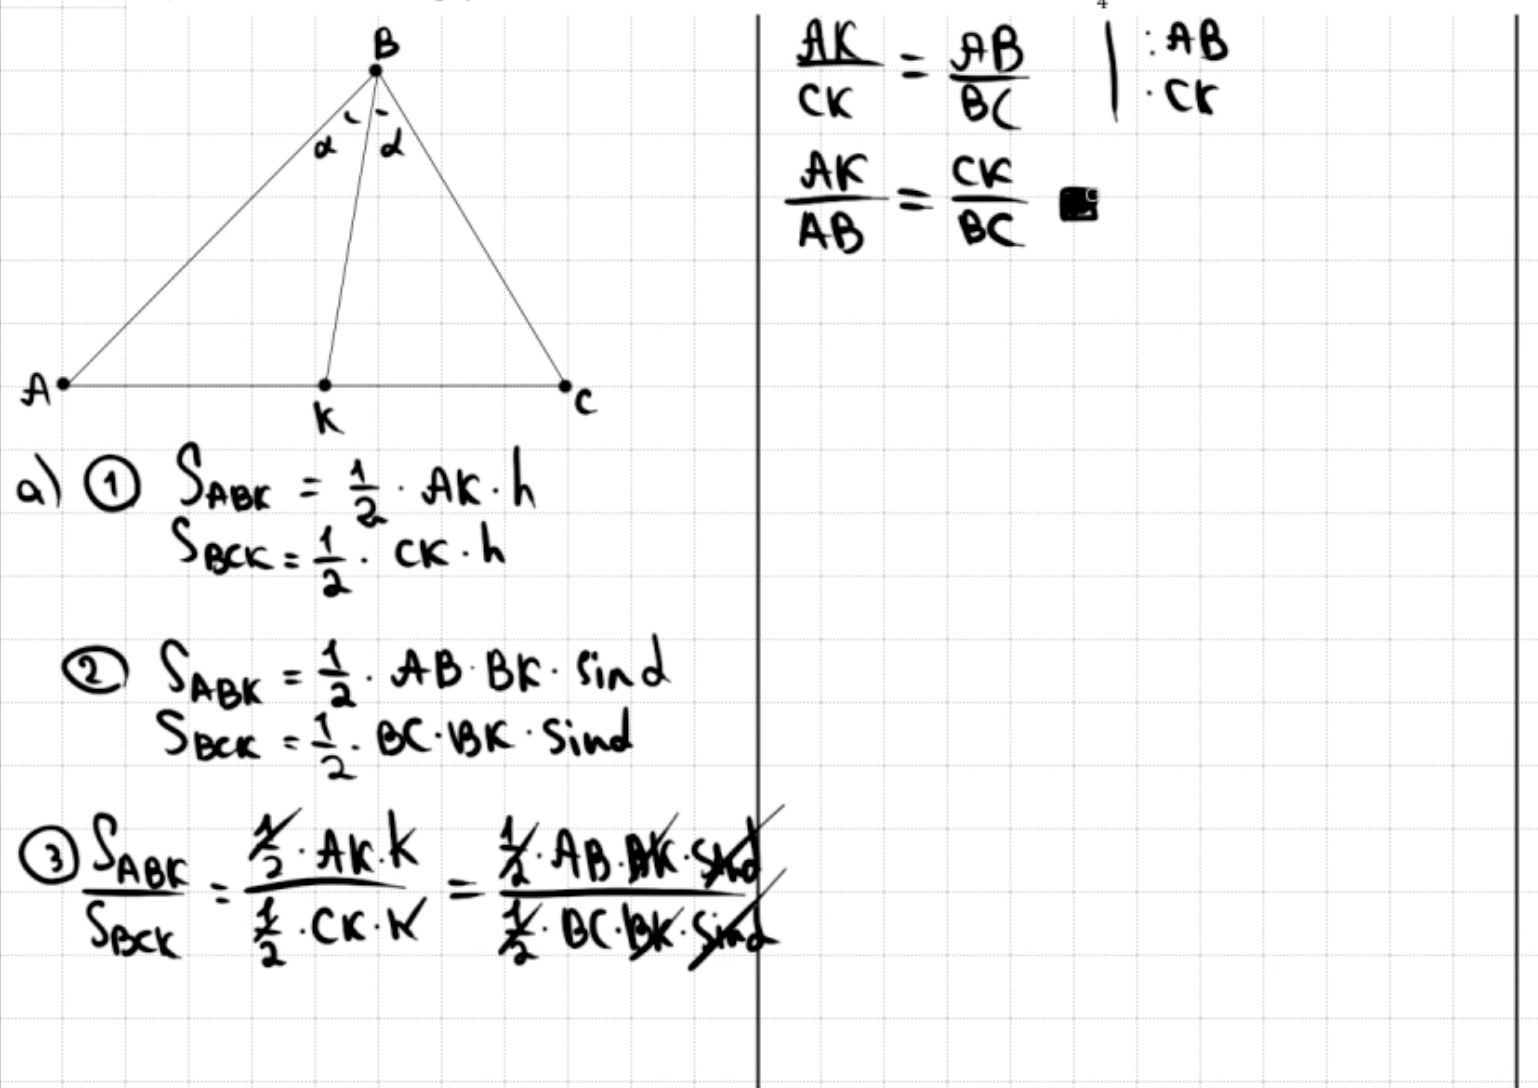 B
α α
A K C
a) ① S_ABK = 1/2 · AK · h
S_BCK = 1/2 · CK · h
② S_ABK = 1/2 · AB · BK · sinα
S_BCK = 1/2 · BC · BK · sinα
③ S_ABK/S_BCK = (1/2 · AK · h)/(1/2 · CK · h) = (1/2 · AB · BK · sinα)/(1/2 · BC · BK · sinα)
4
AK/CK = AB/BC | : AB
· CK
AK/AB = CK/BC ■